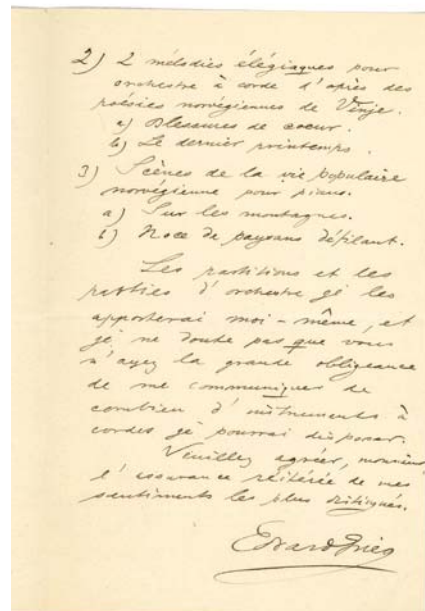 2) 2 mélodies élégiaques pour
orchestre à corde d'après des
poésies norvégiennes de Vinje.
a) Blessures de coeur.
b) Le dernier printemps.
3) Scènes de la vie populaire
norvégienne pour piano.
a) Sur les montagnes.
b) Noce de paysans défilant.
Les partitions et les
parties d'orchestre gé les
apporterai moi-même, et
gé ne doute pas que vous
n'ayez la grande obligeance
de me communiques de
combien d'instruments à
cordes gé pourrai disposer.
Veuillez agréer, monsieur
l'assurance réitérée de mes
sentiments les plus distingués.
Edvard Grieg